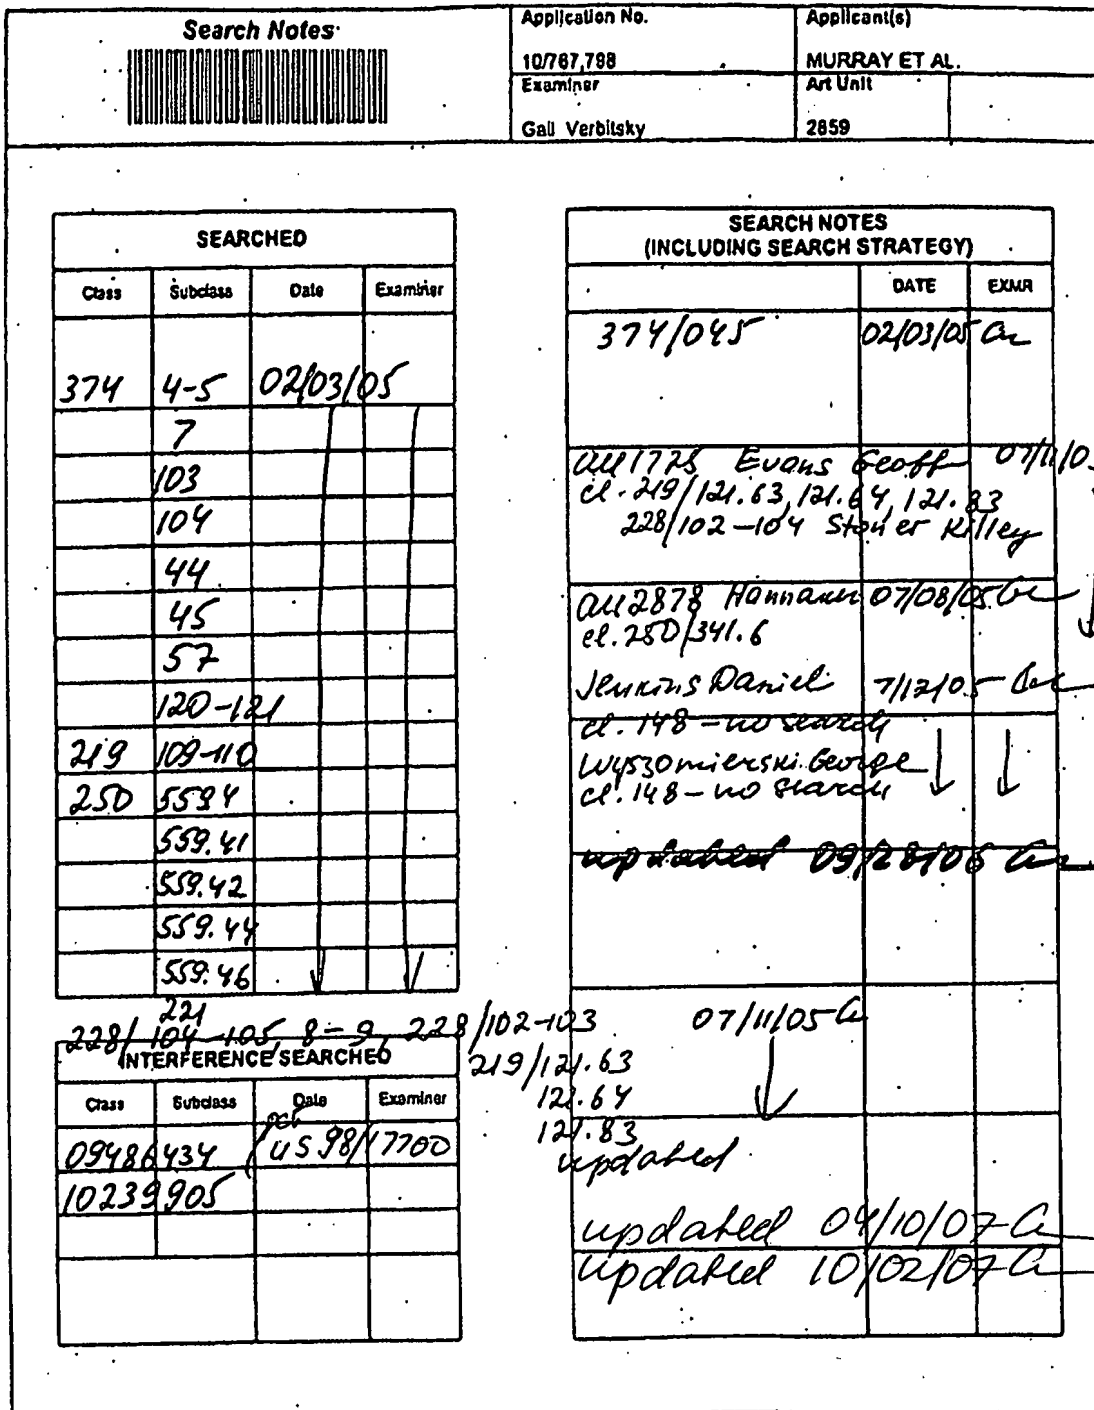 Search Notes
Application No.
10/767,798
Applicant(s)
MURRAY ET AL.
Examiner
Gail Verbitsky
Art Unit
2859
SEARCHED
Class Subclass Date Examiner
374 4-5 02/03/05
7
103
104
44
45
57
120-121
219 109-110
250 559.4
559.41
559.42
559.44
559.46
221
228/104-105, 8-9, 228/102-103 07/11/05
219/121.63
121.64
121.83
updated
INTERFERENCE SEARCHED
Class Subclass Date Examiner
pct
09486434 US98/17700
10239905
SEARCH NOTES
(INCLUDING SEARCH STRATEGY)
DATE EXMR
374/045 02/03/05
AU 1725 Evans Geoff 07/11/05
cl. 219/121.63, 121.64, 121.83
228/102-104 Stoner Killey
AU 2878 Hannaher 07/08/05
cl. 250/341.6
Jenkins Daniel 7/12/05
cl. 148 - no search
Wyszomierski George
cl. 148 - no search
updated 09/28/06
updated 04/10/07
updated 10/02/07